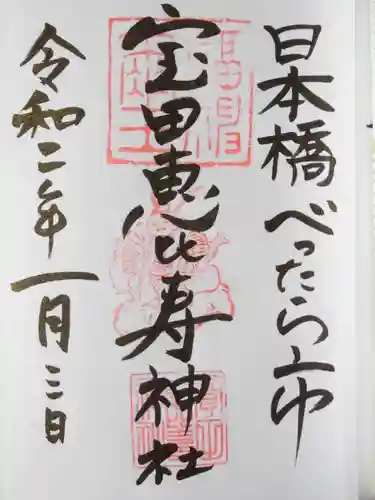 日本橋べったら市
宝田恵比寿神社
令和二年一月三日